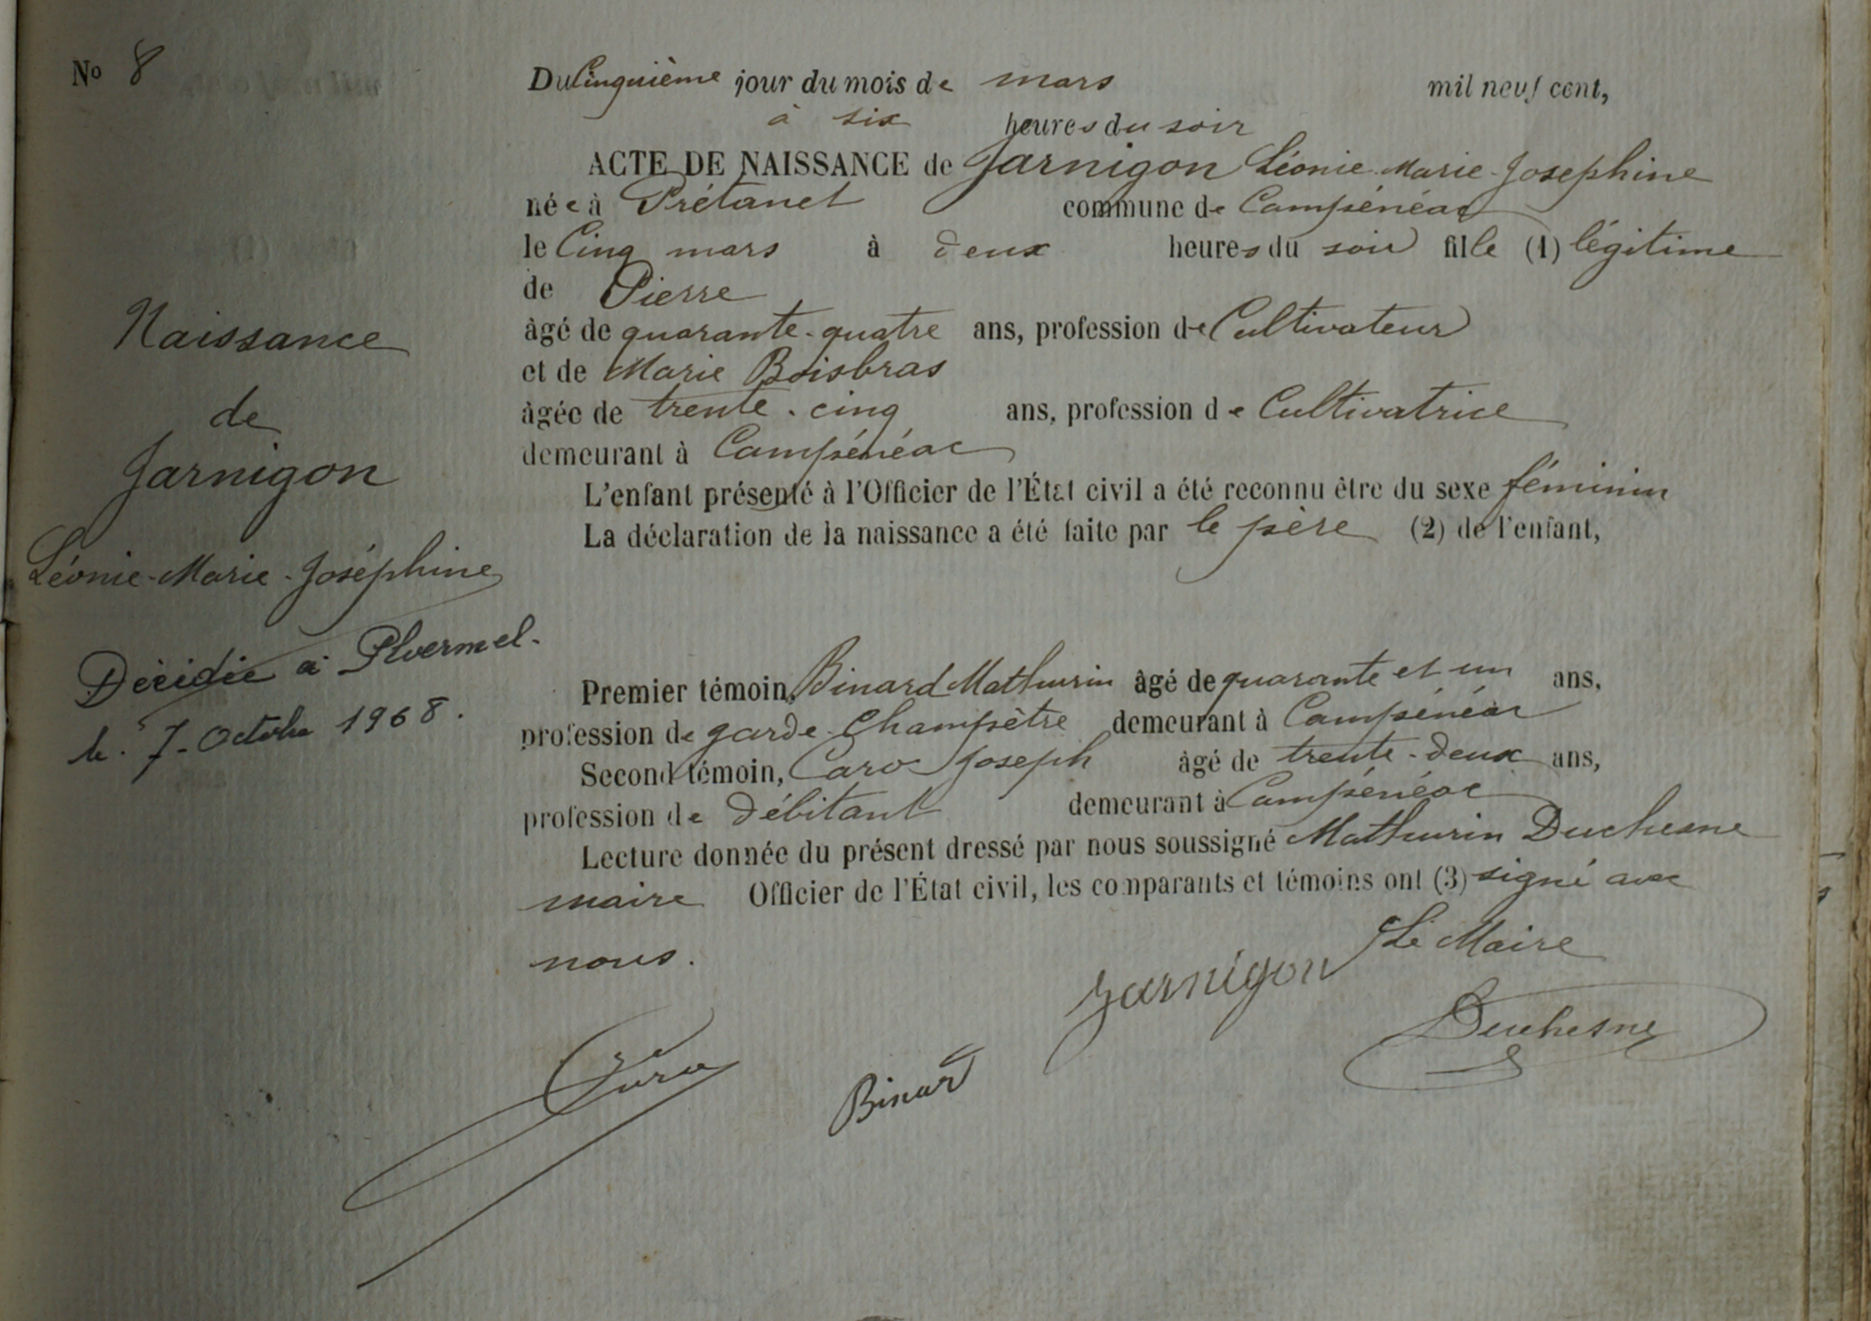 No 8
Du Cinquième jour du mois de mars mil neuf cent,
à six heures du soir
ACTE DE NAISSANCE de Jarnigon Léonie Marie Josephine
née à Prétanet commune de Campénéac
le Cinq mars à deux heures du soir fille (1) légitime
de Pierre
âgé de quarante-quatre ans, profession de Cultivateur
et de Marie Boisbras
âgée de trente-cinq ans, profession de Cultivatrice
demeurant à Campénéac
L'enfant présenté à l'Officier de l'État civil a été reconnu être du sexe féminin
La déclaration de la naissance a été faite par le père (2) de l'enfant,
Naissance
de
Jarnigon
Léonie-Marie-Joséphine
Décédée à Ploermel.
le 7-Octobre 1968.
Premier témoin, Binard Mathurin âgé de quarante et un ans,
profession de garde-Champètre demeurant à Campénéac
Second témoin, Caro Joseph âgé de trente-deux ans,
profession de débitant demeurant à Campénéac
Lecture donnée du présent dressé par nous soussigné Mathurin Duchesne
maire Officier de l'État civil, les comparants et témoins ont (3) signé avec
nous.
Le Maire
Jarnigon
Duchesne
Caro
Binard